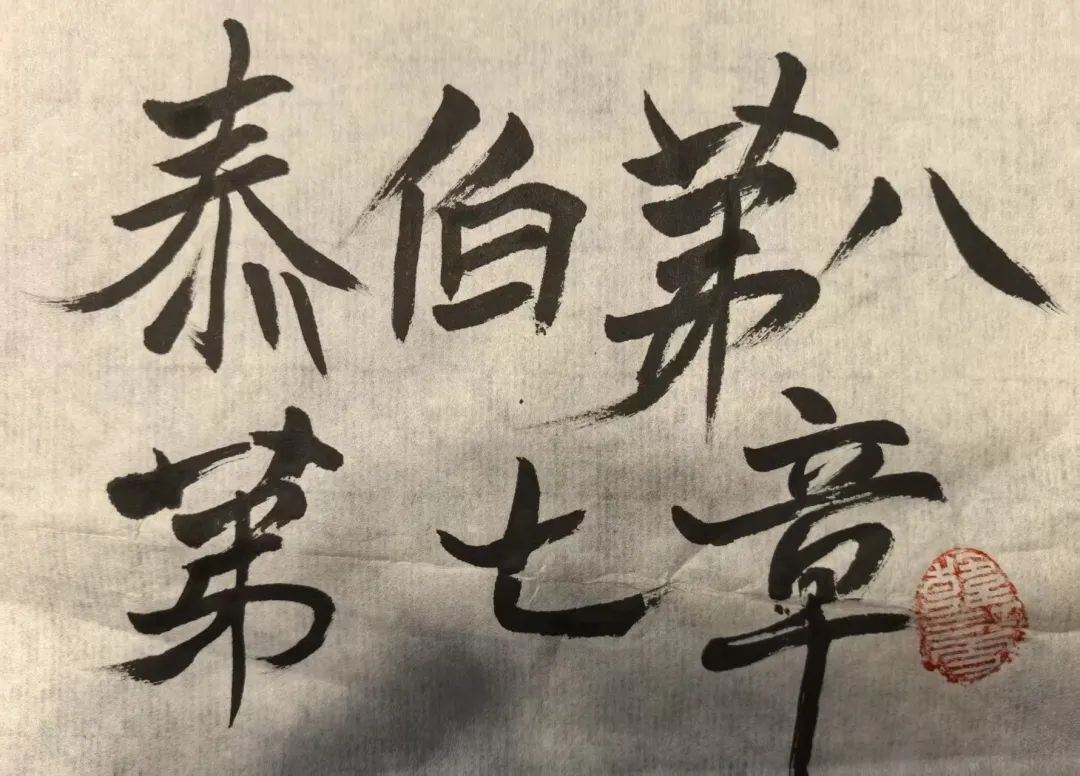 泰伯第八
第七章